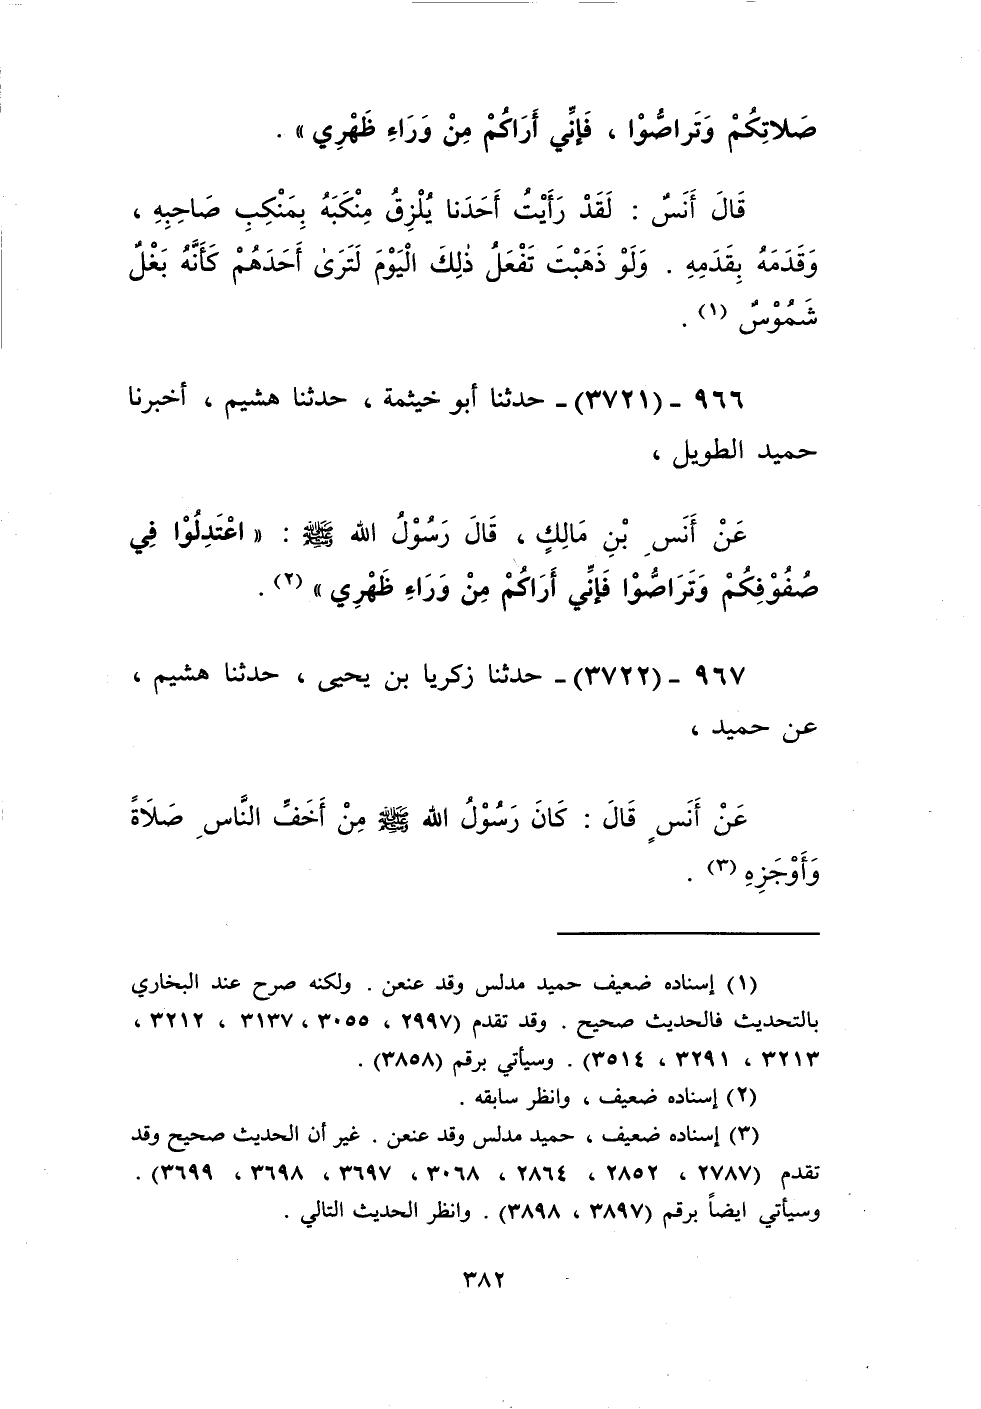 صَلاتِكُمْ وَتَراصُّوْا ، فَإنِّي أَرَاكُمْ مِنْ وَرَاءِ ظَهْرِي » .
قَالَ أَنَسٌ : لَقَدْ رَأَيْتُ أَحَدَنا يُلْزِقُ مِنْكَبَهُ بِمَنْكِبِ صَاحِبِهِ ،
وَقَدَمَهُ بِقَدَمِهِ . وَلَوْ ذَهَبْتَ تَفْعَلُ ذٰلِكَ الْيَوْمَ لَتَرَىٰ أَحَدَهُمْ كَأَنَّهُ بَغْلٌ
شَمُوْسٌ (١) .
٩٦٦ ـ (٣٧٢١) ـ حدثنا أبو خيثمة ، حدثنا هشيم ، أخبرنا
حميد الطويل ،
عَنْ أَنَسِ بْنِ مَالِكٍ ، قَالَ رَسُوْلُ الله ﷺ : « اعْتَدِلُوْا فِي
صُفُوْفِكُمْ وَتَرَاصُّوْا فَإنِّي أَرَاكُمْ مِنْ وَرَاءِ ظَهْرِي » (٢) .
٩٦٧ ـ (٣٧٢٢) ـ حدثنا زكريا بن يحيى ، حدثنا هشيم ،
عن حميد ،
عَنْ أَنَسٍ قَالَ : كَانَ رَسُوْلُ الله ﷺ مِنْ أَخَفِّ النَّاسِ صَلَاةً
وَأَوْجَزِهِ (٣) .
(١) إسناده ضعيف حميد مدلس وقد عنعن . ولكنه صرح عند البخاري
بالتحديث فالحديث صحيح . وقد تقدم (٢٩٩٧ ، ٣٠٥٥ ، ٣١٣٧ ، ٣٢١٢ ،
٣٢١٣ ، ٣٢٩١ ، ٣٥١٤) . وسيأتي برقم (٣٨٥٨) .
(٢) إسناده ضعيف ، وانظر سابقه .
(٣) إسناده ضعيف ، حميد مدلس وقد عنعن . غير أن الحديث صحيح وقد
تقدم (٢٧٨٧ ، ٢٨٥٢ ، ٢٨٦٤ ، ٣٠٦٨ ، ٣٦٩٧ ، ٣٦٩٨ ، ٣٦٩٩) .
وسيأتي ايضاً برقم (٣٨٩٧ ، ٣٨٩٨) . وانظر الحديث التالي .
٣٨٢